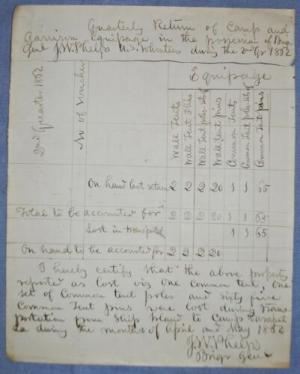 Quarterly Return of Camp and
Garrison equipage in the possession of Brig
Genl J.W. Phelps U.S. Volunteers during the 2nd Qr 1862
2nd Quarter 1862
No of Voucher
Equipage
Wall Tents
Wall Tent Flies
Wall Tent poles sets
Wall tent pins
Common Tents
Common Tent poles sets
Common Tent pins
On hand last return 2 2 2 20 1 1 65
Total to be accounted for 2 2 2 20 1 1 65
Lost in transportn 1 1 65
On hand to be accounted for 2 2 2 20
I hereby certify that the above property
reported as lost viz one common tent, one
set of common tent poles and sixty five
common tent pins were lost during trans
portation from Ship Island to Camp Parapet
La during the months of April and May 1862
J.W. Phelps
Brigr Genl